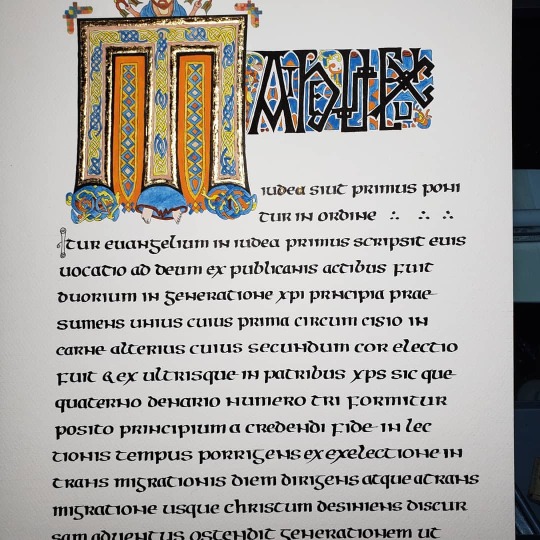 MATHEUS EX
iudea sicut primus poni
tur in ordine
Itur euangelium in iudea primus scripsit euis
uocatio ad deum ex publicanis actibus fuit
duorium in generatione xpi principia prae
sumens unius cuius prima circum cisio in
carne alterius cuius secundum cor electio
fuit & ex ultrisque in patribus xps sic que
quaterno denario numero tri formitur
posito principium a credendi fide in lec
tionis tempus porrigens ex exelectione in
trans migrationis diem dirigens atque atrans
migratione usque christum desiniens discur
sam aduentus ostendit generationem ut